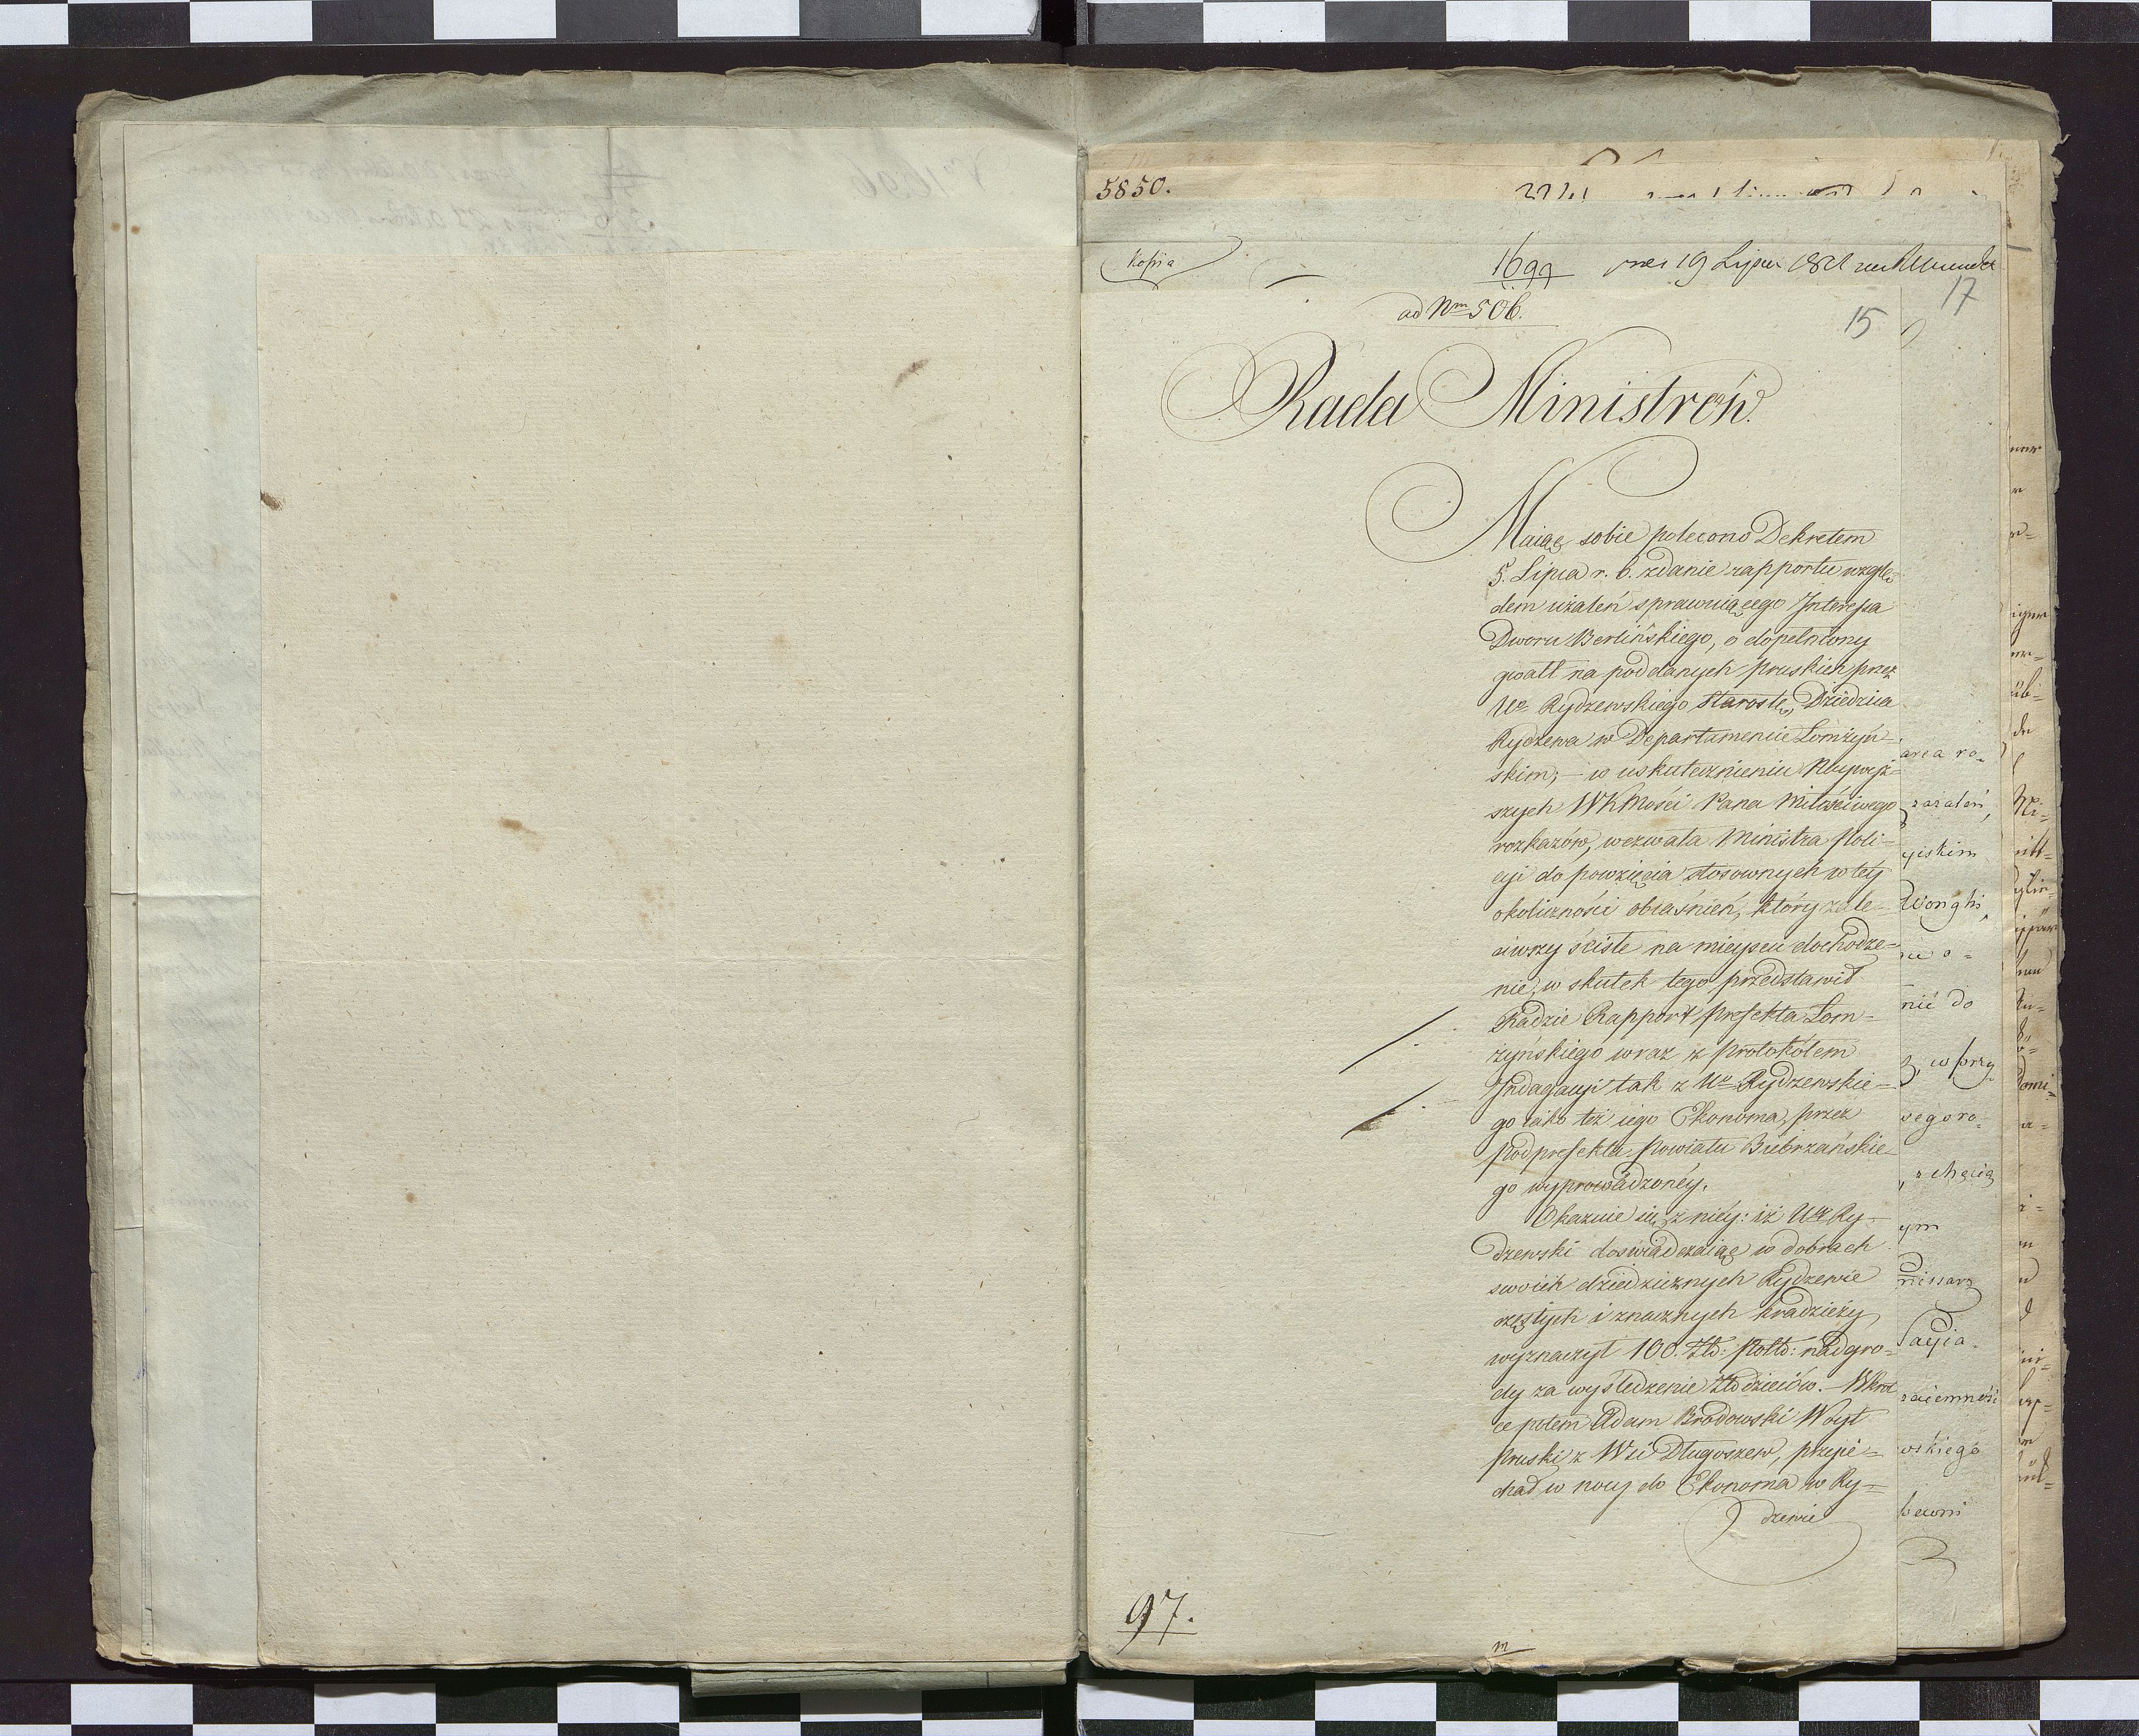 5850.
Kopia
1699
19 Lipca
17
ad Nrm 506.
15
Rada Ministrów.
Maiąc sobie polecono Dekretem
5. Lipca r. b. zdanie rapportu wzglę-
dem użaleń sprawuiącego Interessa
Dworu Berlińskiego, o dopełniony
gwałt na poddanych pruskich przez
Ur. Rydzewskiego Starostę, Dziedzica
Rydzewa w Departamencie Łomżyń-
skim, – w uskutecznieniu Naywyż-
szych WKMości Pana Miłościwego
rozkazów, wezwała Ministra Poli-
cyi do powzięcia stosownych w tey
okoliczności obiaśnień, który zale-
ciwszy ścisłe na mieyscu dochodze-
nie, w skutek tego przedstawił
Radzie Rapport Prefekta Łom-
żyńskiego wraz z protokołem
Indagacyi tak z Ur. Rydzewskie-
go iako też iego Ekonoma, przez
Podprefekta Powiatu Biebrzańskie-
go wyprowadzoney.
Okazuie się z niéy: iż Ur. Ry-
dzewski doświadczaiąc w dobrach
swoich dziedzicznych Rydzewie
częstych i znacznych kradzieży
wyznaczył 100. Złł: Polłł: nadgro-
dy za wyśledzenie Złodzieiów. – Wkrot
ce potem Adam Brodowski Woyt
Pruski z Wsi Długoszew, przyie-
chał w nocy do Ekonoma w Ry-
dzewie
97.
area ro-
zażaleń,
yiskim
Wonghi
nić do
z, w przy
wegoro-
z chęcią
ym
missarz
acyia
zaiemność
wskiego